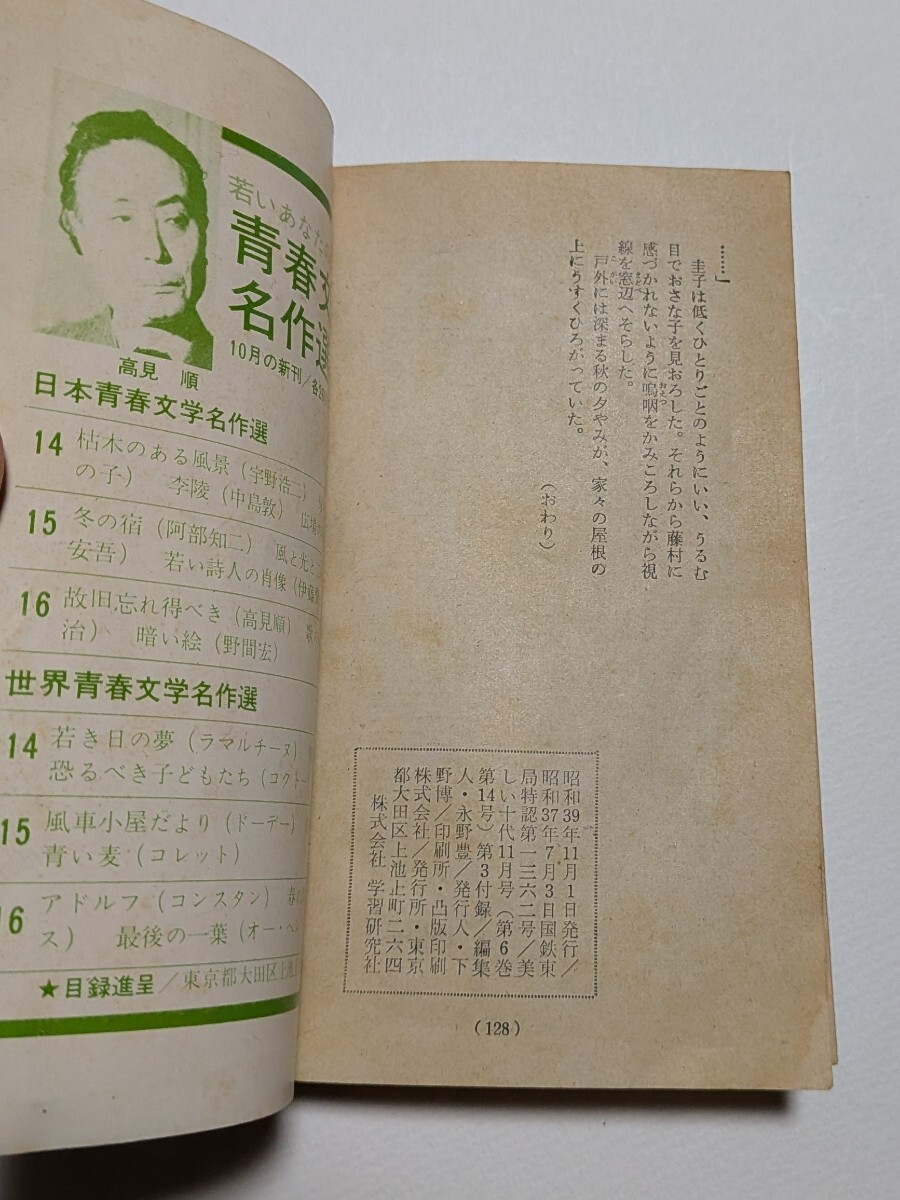 若いあなた
青春文
名作選
10月の新刊/各
高見 順
日本青春文学名作選
14 枯木のある風景(宇野浩二)
の子) 李陵(中島敦) 広場
15 冬の宿(阿部知二) 風と光と
安吾) 若い詩人の肖像(伊藤
16 故旧忘れ得べき(高見順)
治) 暗い絵(野間宏)
世界青春文学名作選
14 若き日の夢(ラマルチーヌ)
恐るべき子どもたち(コクトー
15 風車小屋だより(ドーデー)
青い麦(コレット)
16 アドルフ(コンスタン) 春
ス) 最後の一葉(オー・ヘン
★目録進呈/東京都大田区上池
……」
圭子は低くひとりごとのようにいい、うるむ
目でおさな子を見おろした。それらから藤村に
感づかれないように嗚咽をかみころしながら視
線を窓辺へそらした。
戸外には深まる秋の夕やみが、家々の屋根の
上にうすくひろがっていた。
(おわり)
昭和39年11月1日発行/
昭和37年7月3日国鉄東
局特認第一三六二号/美
しい十代11月号(第6巻
第14号)第3付録/編集
人・永野豊/発行人・下
野博/印刷所・凸版印刷
株式会社/発行所・東京
都大田区上池上町二六四
株式会社 学習研究社
(128)